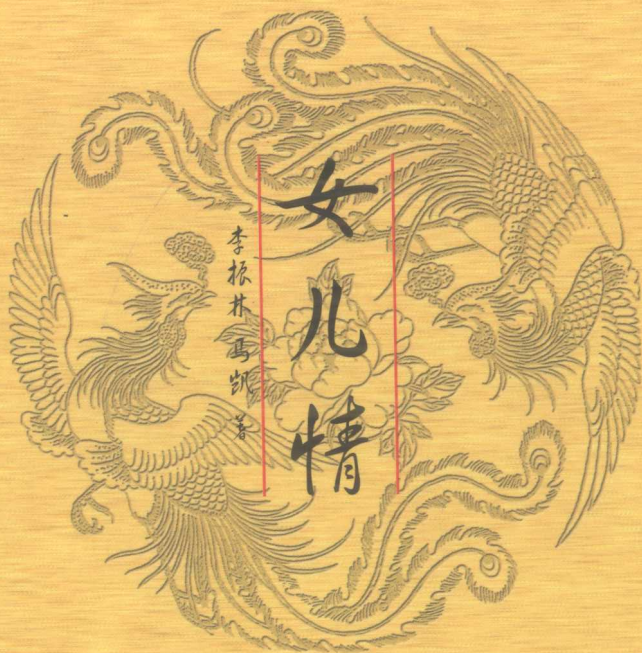 女儿情
李振林 马凯 著